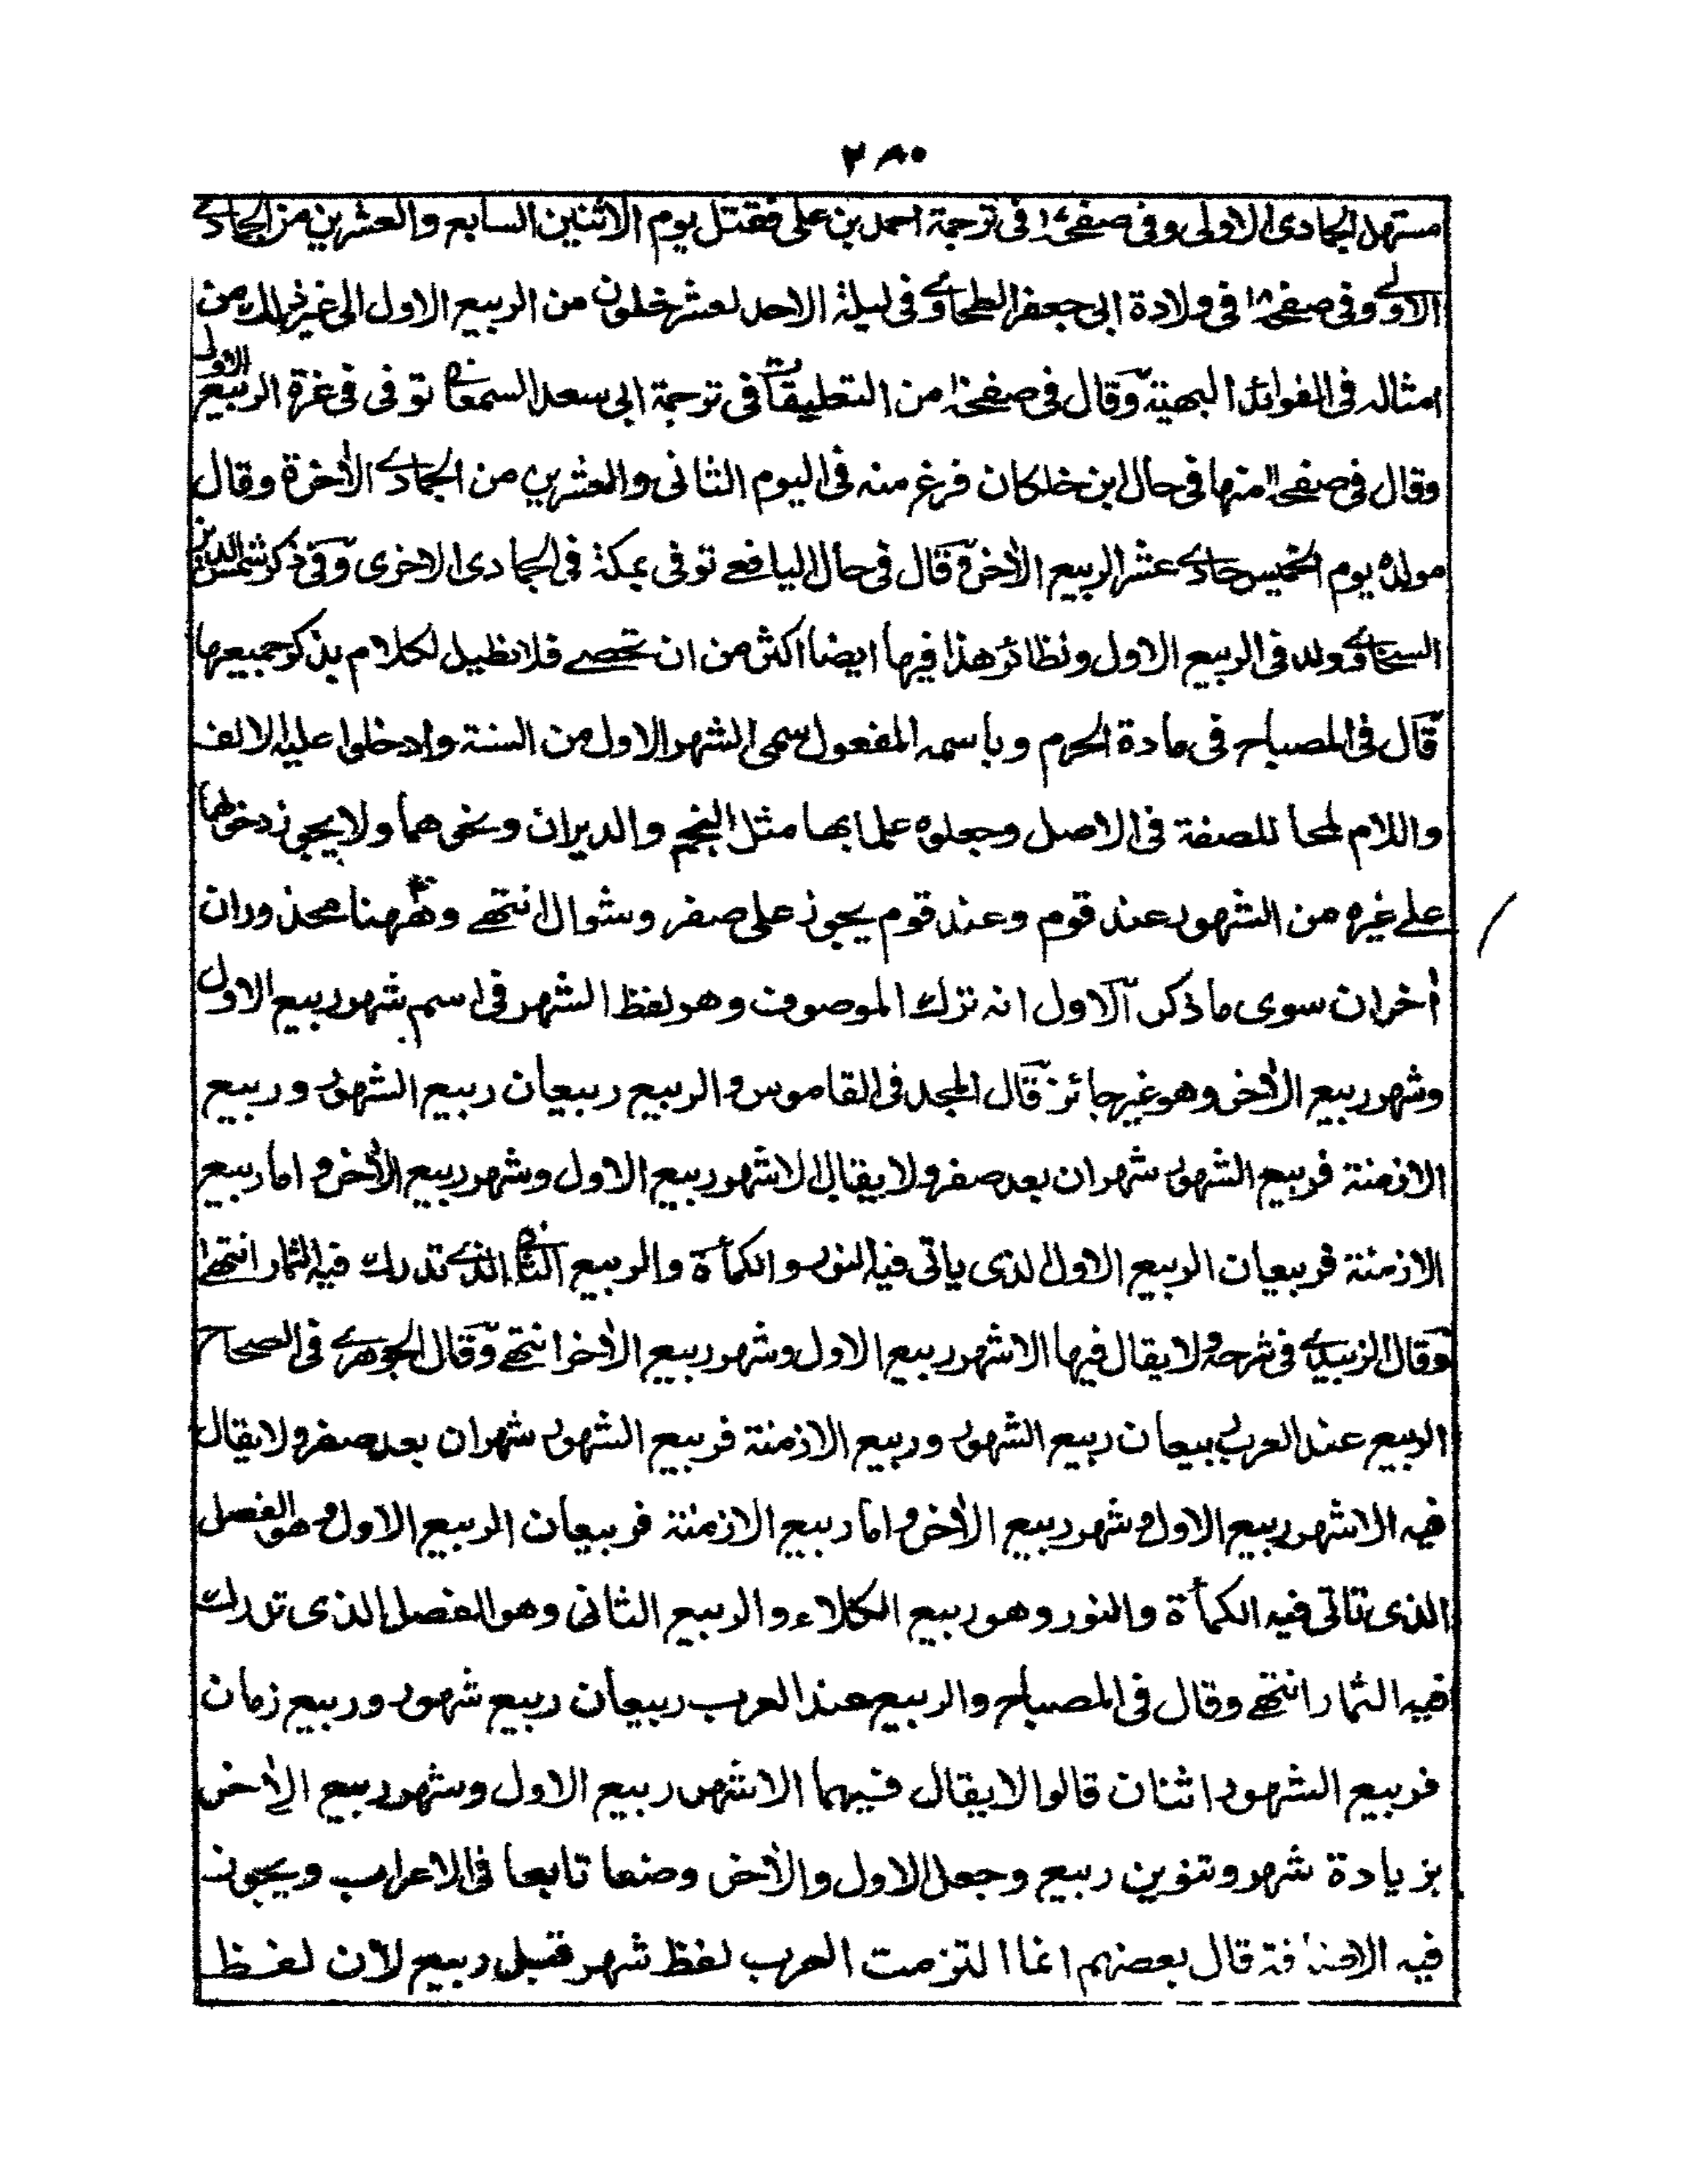 ٢٨٠
مستهل الجمادى الاولى وفى صفحة فى ترجمة احمد بن على فقتل يوم الاثنين السابع والعشرين من الجمادے
الاولے وفى صفحة فى ولادة ابى جعفر الطحاوے وفى ليلة الاحد لعشر خلون من الربيع الاول الى غير ذلك من
امثاله فى الفوائد البهية وقال فى صفحة من التعليقات فى ترجمة ابى سعد السمعانى توفى فى غرة الربيع الاول
وقال فى صفحة منها فى حال ابن خلكان فرغ منه فى اليوم الثانى والعشرين من الجمادے الاٰخرة وقال
مولده يوم الخميس حادے عشر الربيع الاٰخر وقال فى حال اليافعے توفى بمكة فى الجمادى الاخرى وفى ذكر شمس الدين
السخاوے ولد فى الربيع الاول ونظائر هذا فيها ايضا اكثر من ان تحصے فلا نطيل الكلام بذكر جميعها
قال فى المصباح فى مادة الحرم وباسمه المفعول سمى الشهر الاول من السنة وادخلوا عليه الالف
واللام لمحا للصفة فى الاصل وجعلوه علما بها مثل النجم والدبران ونحوهما ولا يجوز دخولهما
علے غيره من الشهور عند قوم وعند قوم يجوز على صفر وشوال انتهے وههنا محذوران
اٰخران سوى ما ذكر الاول انه ترك الموصوف وهو لفظ الشهر فى اسم شهر ربيع الاول
وشهر ربيع الاٰخر وهو غير جائز قال المجد فى القاموس والربيع ربيعان ربيع الشهور وربيع
الازمنة فربيع الشهور شهران بعد صفر ولا يقال الا شهر ربيع الاول وشهر ربيع الاٰخر واما ربيع
الازمنة فربيعان الربيع الاول الذى ياتى فيه النور والكمأة والربيع الثانى الذے تدرك فيه الثمار انتهے
وقال الزبيدے فى شرحه ولا يقال فيها الا شهر ربيع الاول وشهر ربيع الاٰخر انتهے وقال الجوهرے فى الصحاح
الربيع عند العرب ربيعان ربيع الشهور وربيع الازمنة فربيع الشهور شهران بعد صفر ولا يقال
فيه الا شهر ربيع الاول وشهر ربيع الاٰخر واما ربيع الازمنة فربيعان الربيع الاول وهو الفصل
الذى تاتى فيه الكمأة والنور وهو ربيع الكلاء والربيع الثانى وهو الفصل الذى تدرك
فيه الثمار انتهے وقال فى المصباح والربيع عند العرب ربيعان ربيع شهور وربيع زمان
فربيع الشهور اثنان قالوا لا يقال فيهما الا شهر ربيع الاول وشهر ربيع الاٰخر
بزيادة شهر وتنوين ربيع وجعل الاول والاٰخر وصفا تابعا فى الاعراب ويجوز
فيه الاضافة قال بعضهم انما التزمت العرب لفظ شهر قبل ربيع لان لفظ